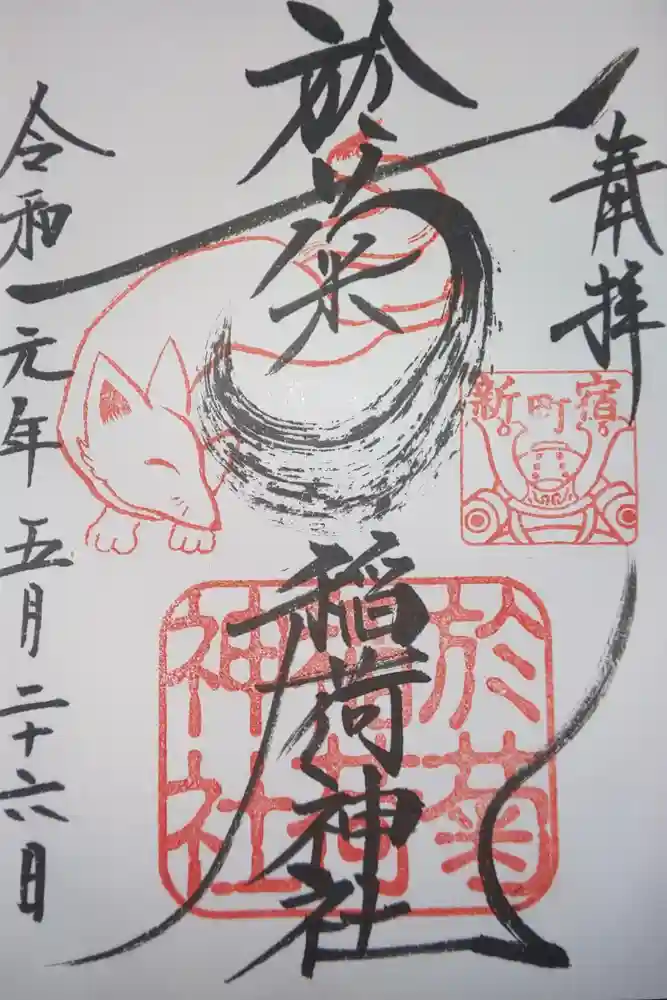 奉拝
新町宿
於菊稲荷神社
於菊
稲荷
神社
令和元年五月二十六日